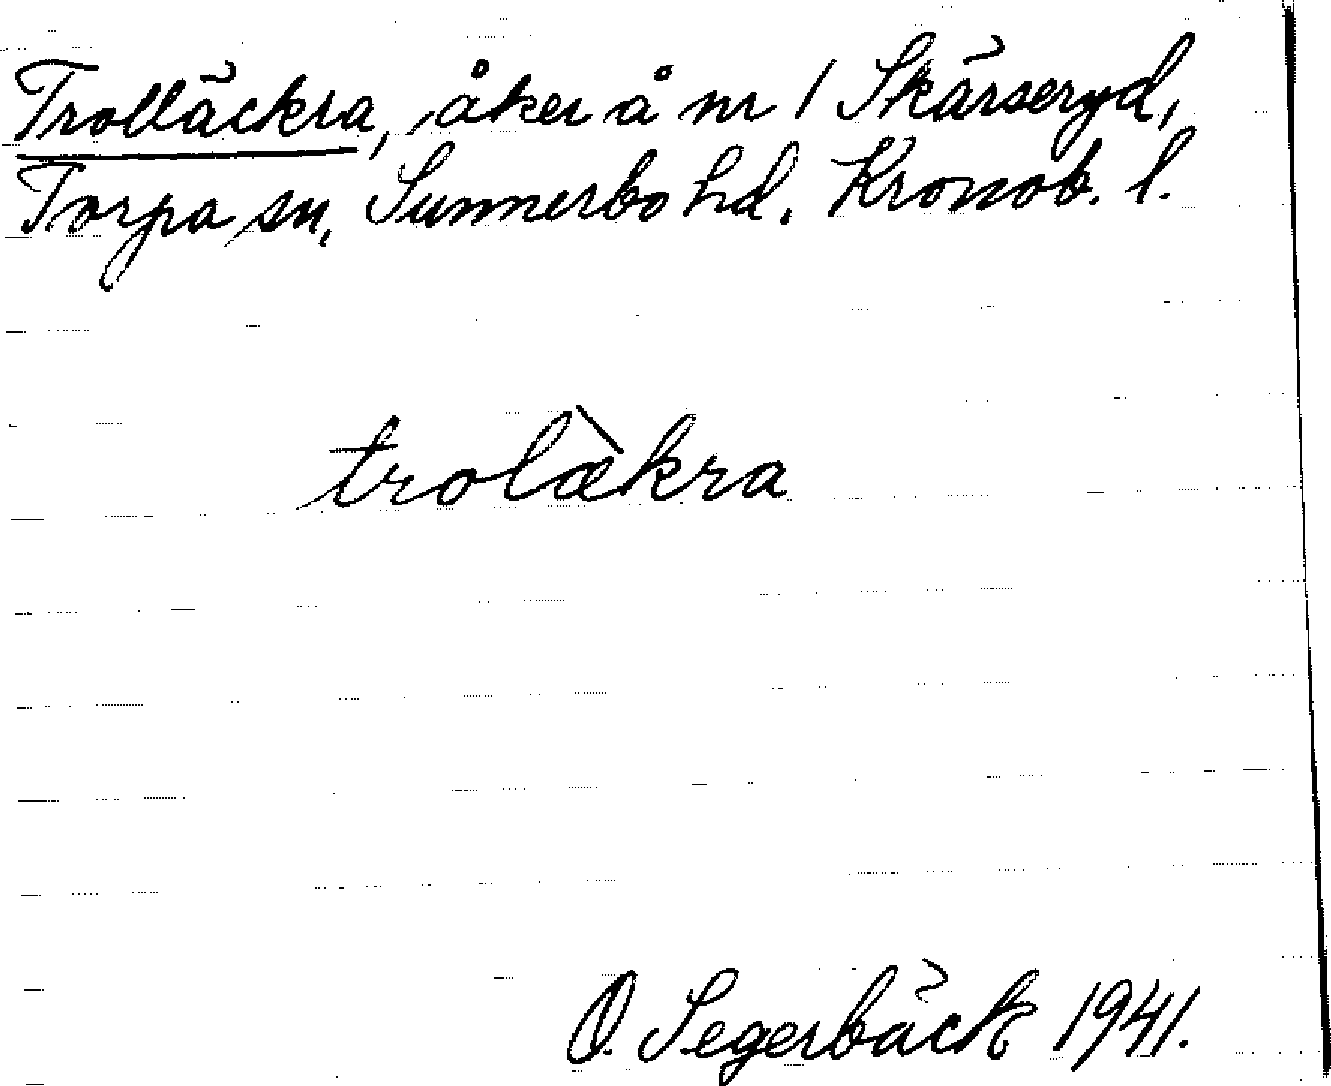 Trolläckra, åker å nr 1 Skärseryd,
Torpa sn, Sunnerbo hd. Kronob. l.
trolæ̀kra
O. Segerbäck 1941.